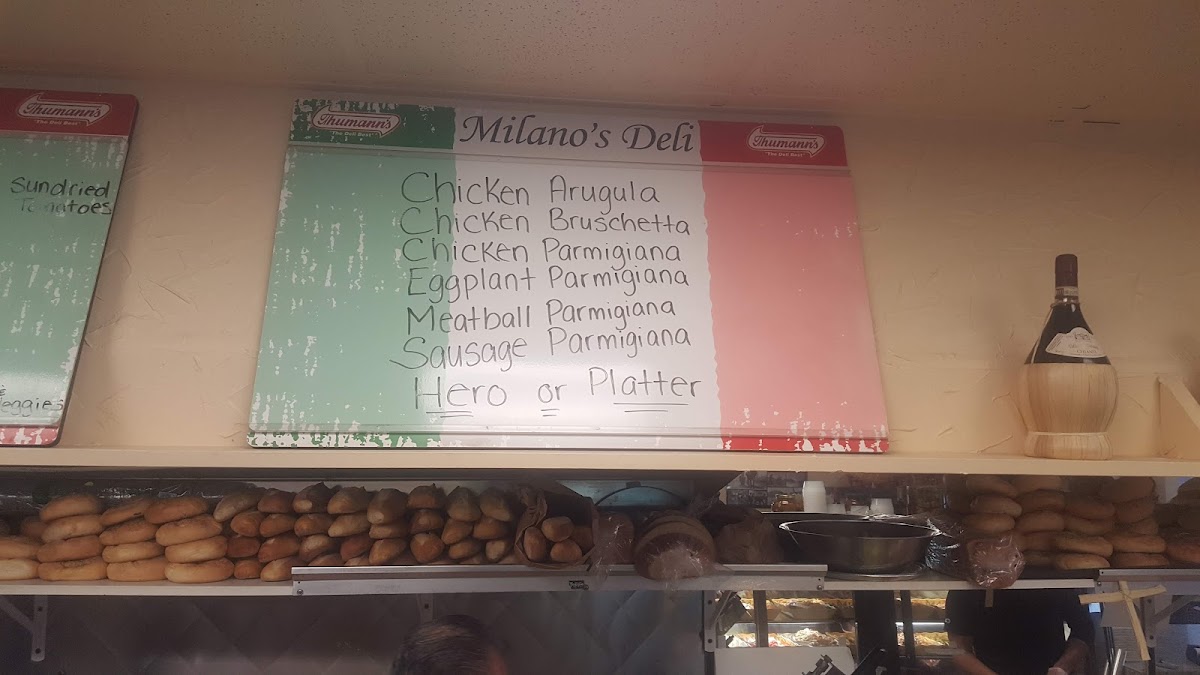 Thumann's
"The Deli Best"
Sundried
Tomatoes
Veggies
Thumann's
"The Deli Best"
Milano's Deli
Thumann's
"The Deli Best"
Chicken Arugula
Chicken Bruschetta
Chicken Parmigiana
Eggplant Parmigiana
Meatball Parmigiana
Sausage Parmigiana
Hero or Platter